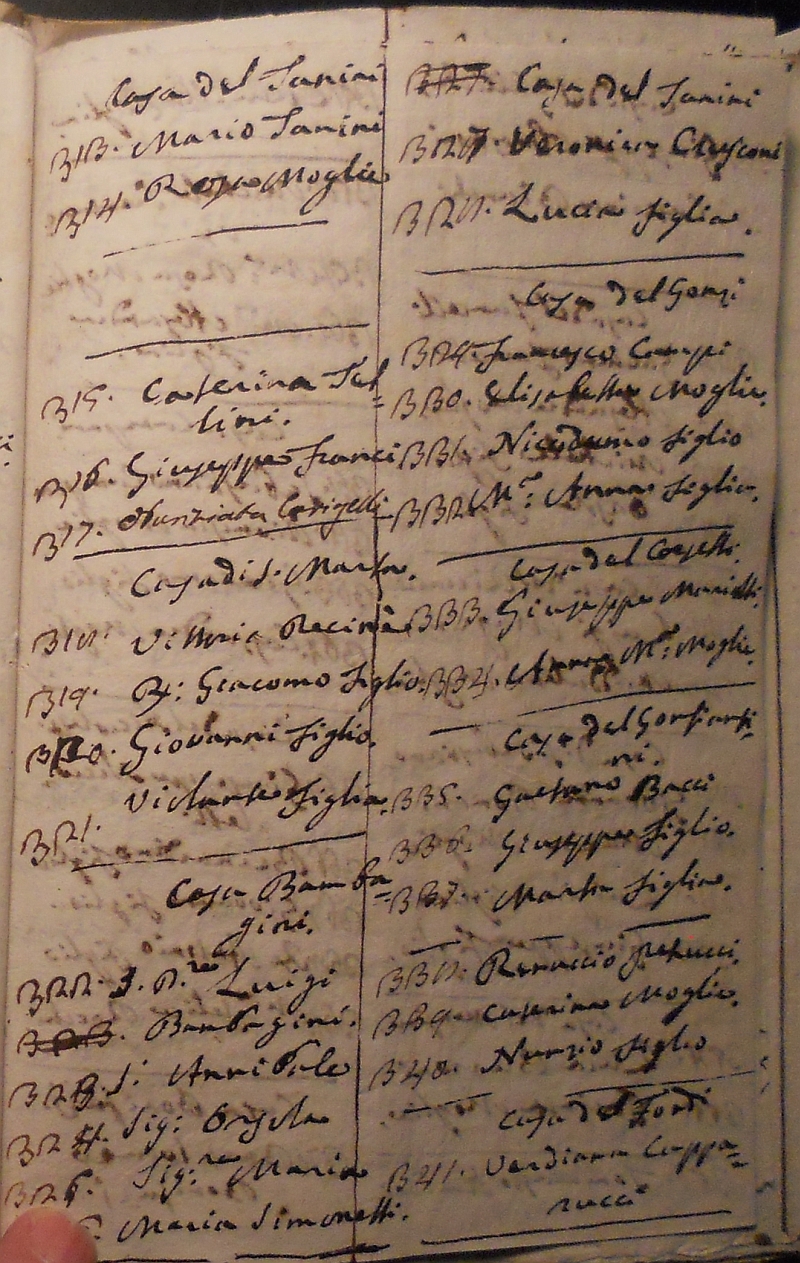 Casa del Sanini
313. Mario Sanini
314. Rosa Moglie
315. Caterina Sel=
lini.
316. Giuseppe Franci
317. Nunziata
Casa di S. Marta.
318. Vittoria
319. Giacomo figlio.
320. Giovanni figlio.
321. Violante figlia.
Casa Bamba=
gini.
322. Luigi
Bambagini.
323. S. Annibale
324. Sig: Orsola
325. Sig:ra Maria
Maria Simonetti.
327. Casa del Sanini
327. Veronica
328. Lucia figlia.
Casa del Gonzi
329. Francesco Campi
330. Elisabetta Moglie.
331. Nicodemo figlio
332. M.a Anna figlia.
Casa del Corsetti.
333. Giuseppe Mariotti.
334. Anna M.a Moglie.
Casa del Gonfianti=
ni.
335. Gaetano Bacci
336. Giuseppe figlio.
337. Marta figlia.
338. Petrucci.
339. Caterina Moglie.
340. Nunzio figlio
Casa del
341. Verdiana Cappa=
rucci